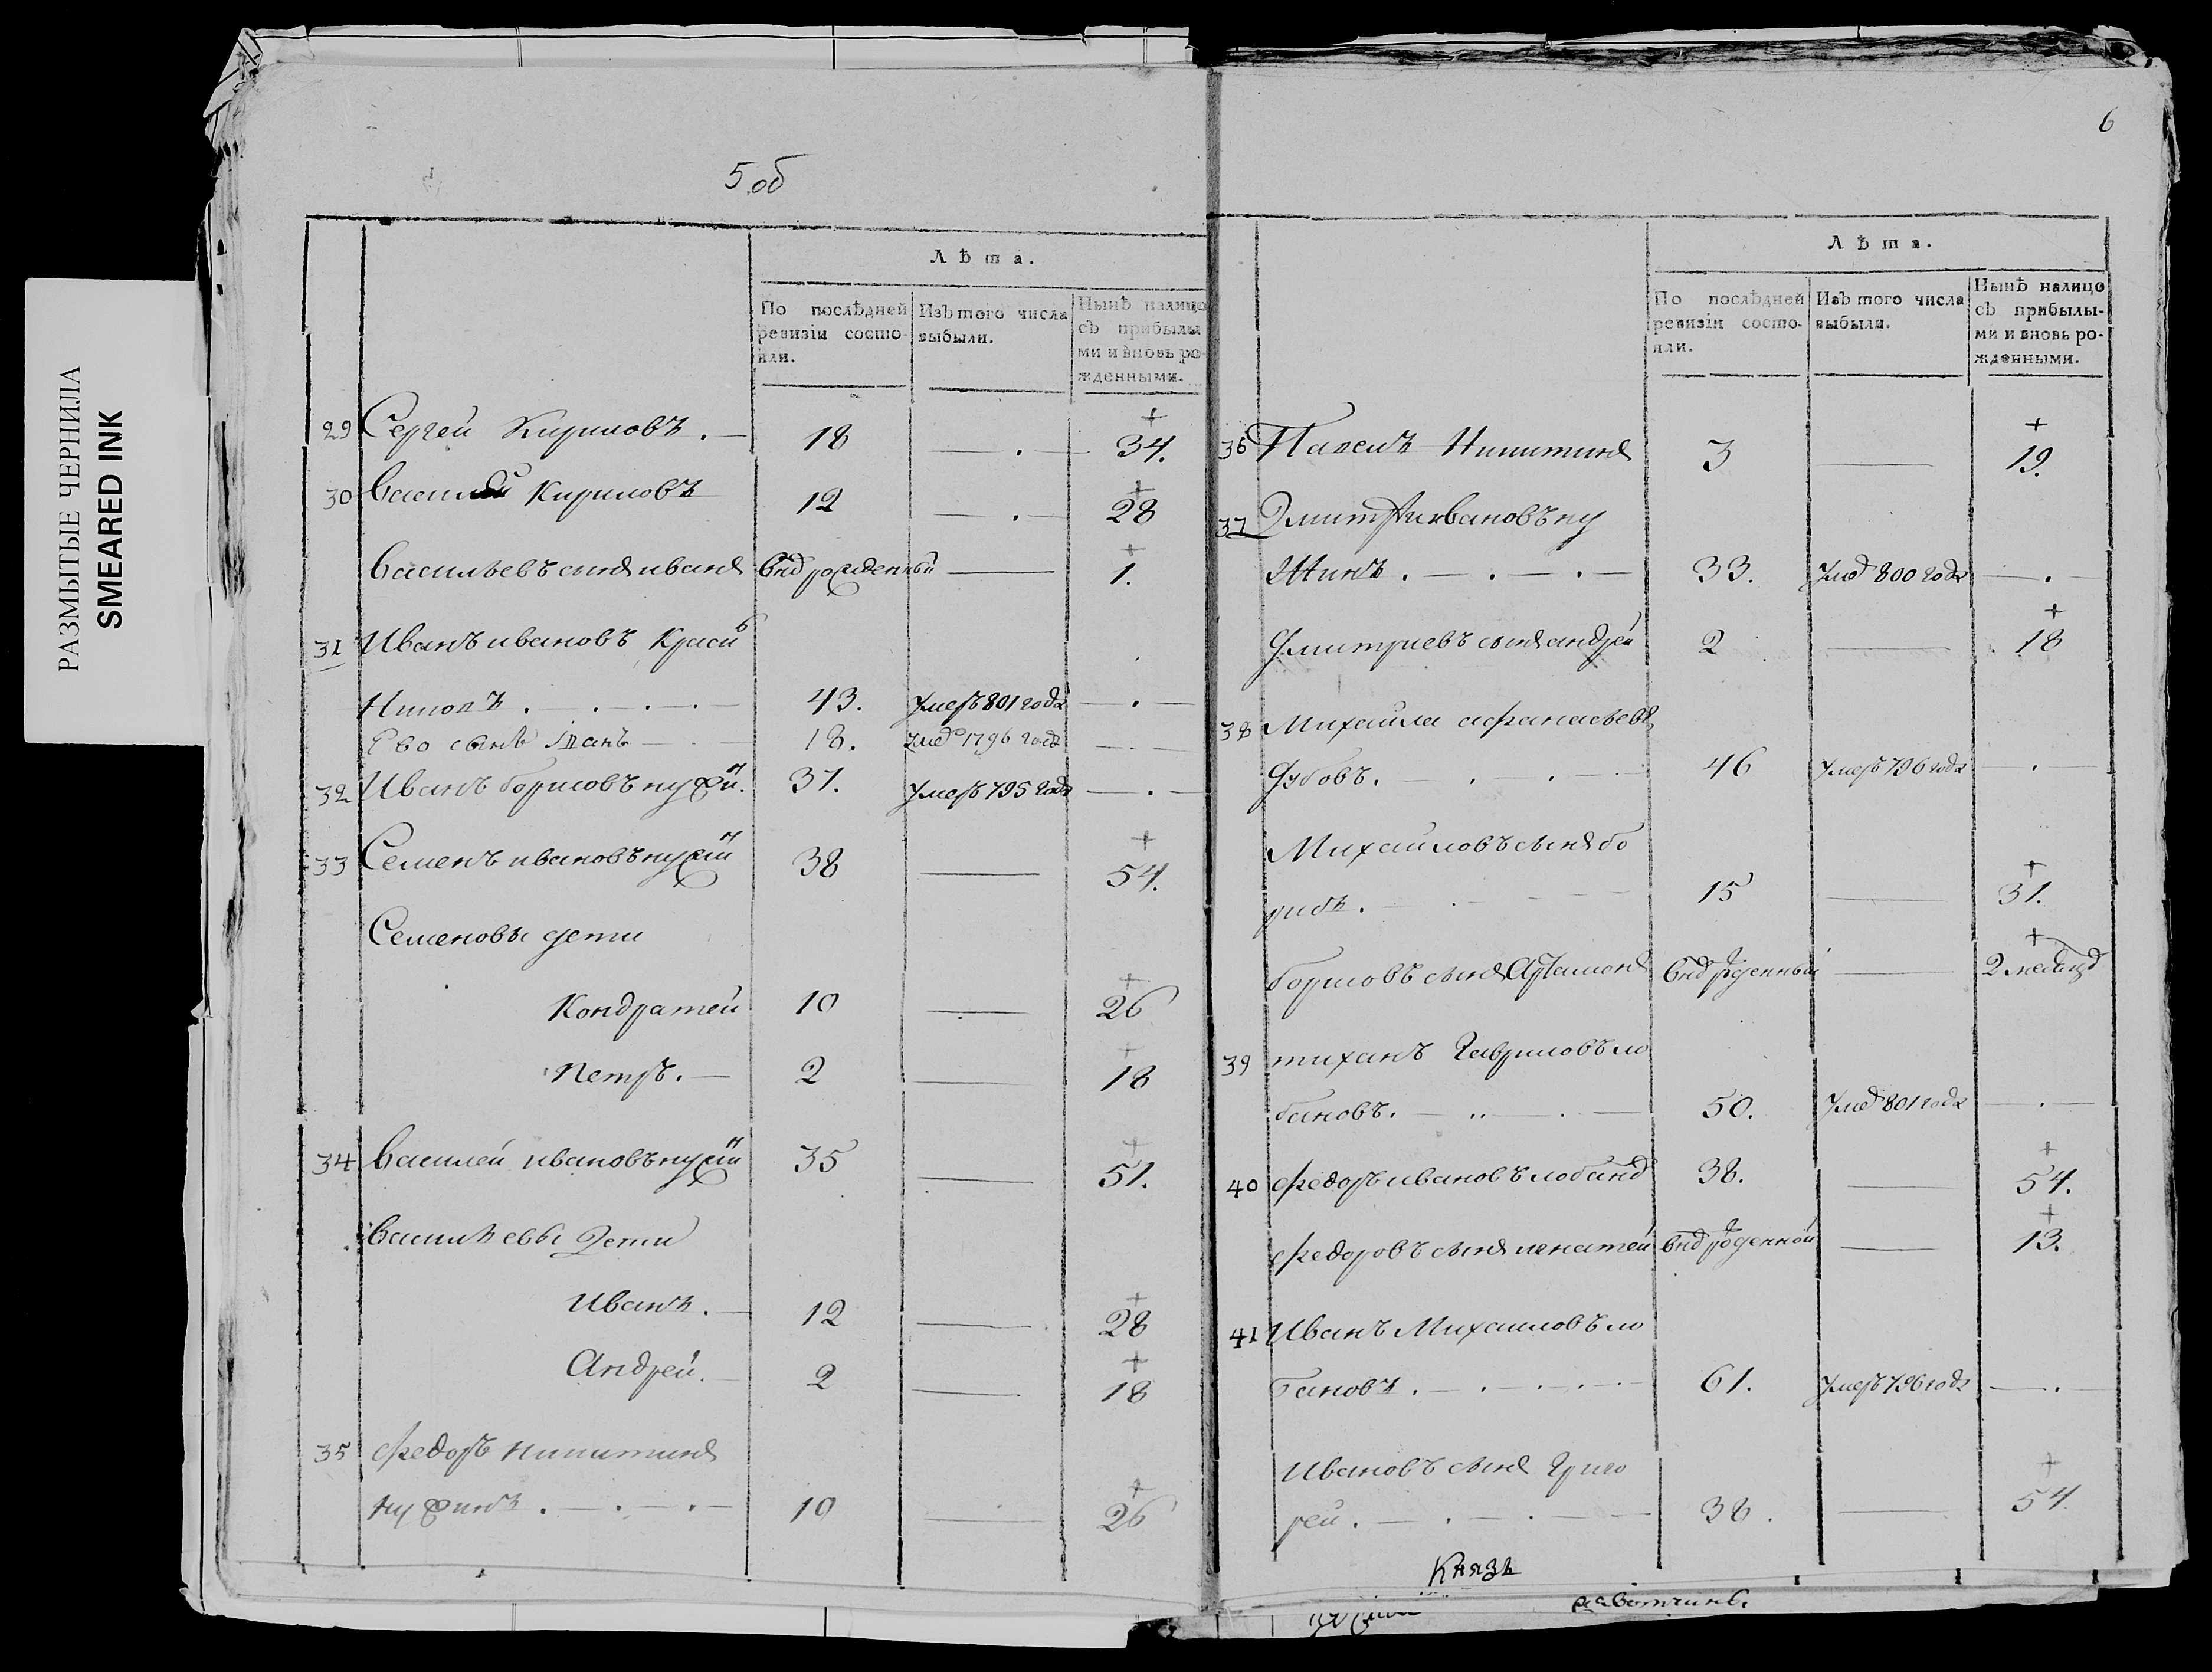 РАЗМЫТЫЕ ЧЕРНИЛА
SMEARED INK
5 об
Лѣта.
По послѣдней ревизіи состояли.
Изъ того числа выбыли.
Нынѣ налицо съ прибылыми и вновь рожденными.
29 Сергей Кириловъ. 18 — 34.
30 Василей Кириловъ 12 — 28
Васильевъ сынъ иванъ внорожденный — 1.
31 Иванъ ивановъ Краси
никовъ. 43. умеръ 801 года —
Ево сынъ 18. умре 1796 года —
32 Иванъ борисовъ 37. умеръ 795 года —
33 Семенъ ивановъ 38 — 54.
Семеновы дети
Кондратей 10 — 26
Петръ. 2 — 18
34 Василей ивановъ 35 — 51.
Васильевы дети
Иванъ. 12 — 28
Андрей. 2 — 18
35 Федоръ никитинъ
10 — 26
6
Лѣта.
По послѣдней ревизіи состояли.
Изъ того числа выбыли.
Нынѣ налицо съ прибылыми и вновь рожденными.
36 Павелъ Никитинъ 3 — 19.
37 Дмитрий ивановъ пу
жинъ. 33. умре 800 года —
Дмитриевъ сынъ андрей 2 — 18
38 Михаила афанасьевъ
Дубовъ. 46 умеръ 796 года —
Михаиловъ сынъ бо
рисъ. 15 — 31.
борисовъ сынъ Артамонъ — 2
39 тиханъ Гавриловъ ло
бановъ. 50. умре 801 года —
40 Федоръ ивановъ лобанов 38. — 54.
Федоровъ сынъ — 13.
41 Иванъ Михаиловъ ло
бановъ. 61. умеръ 796 года —
Ивановъ сынъ Григо
рей. 38. — 54
Князь